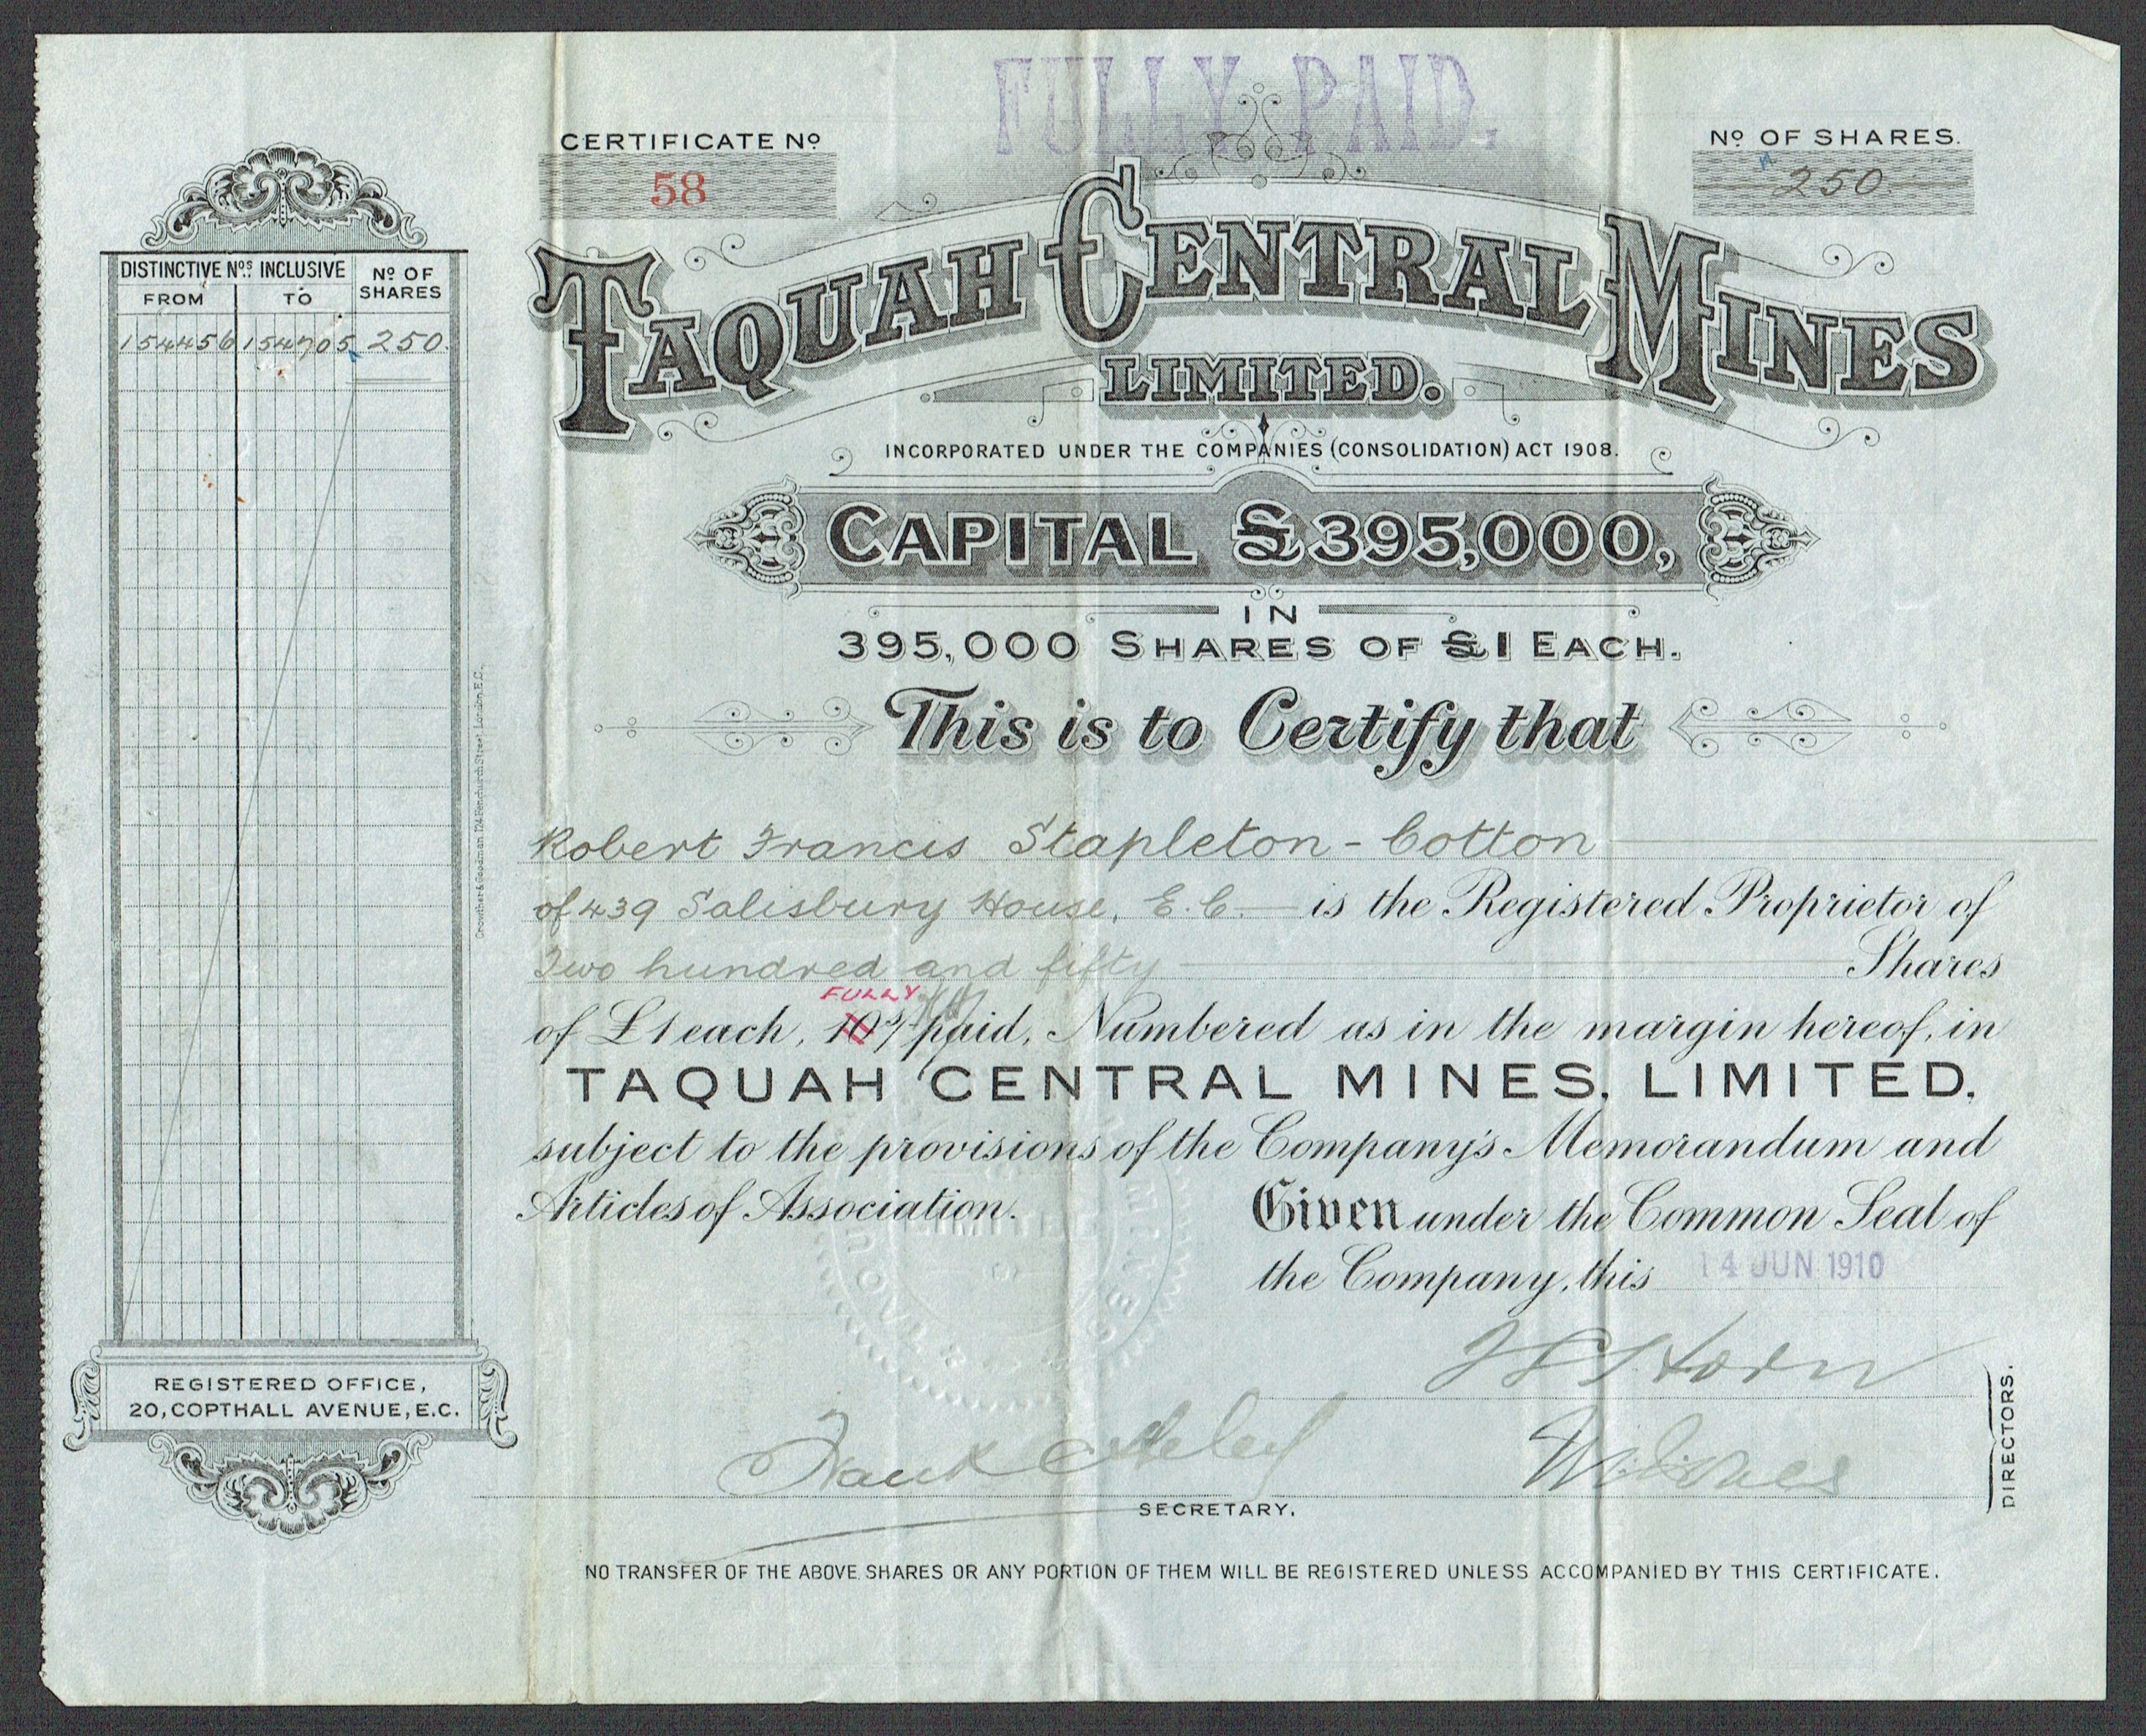 FULLY PAID.
CERTIFICATE Nº
58
Nº OF SHARES.
250
TAQUAH CENTRAL MINES
LIMITED.
INCORPORATED UNDER THE COMPANIES (CONSOLIDATION) ACT 1908.
CAPITAL £395,000,
IN
395,000 SHARES OF £1 EACH.
This is to Certify that
Robert Francis Stapleton-Cotton
of 439 Salisbury House, E.C. is the Registered Proprietor of
Two hundred and fifty Shares
FULLY
of £1 each, 10s/- paid, Numbered as in the margin hereof, in
TAQUAH CENTRAL MINES, LIMITED,
subject to the provisions of the Company's Memorandum and
Articles of Association. Given under the Common Seal of
the Company, this 14 JUN 1910
Horn
Frank
SECRETARY.
DIRECTORS.
NO TRANSFER OF THE ABOVE SHARES OR ANY PORTION OF THEM WILL BE REGISTERED UNLESS ACCOMPANIED BY THIS CERTIFICATE.
DISTINCTIVE Nºs INCLUSIVE
FROM TO
Nº OF SHARES
154456 154705 250.
Crowther & Goodman, 124 Fenchurch Street, London, E.C.
REGISTERED OFFICE,
20, COPTHALL AVENUE, E.C.